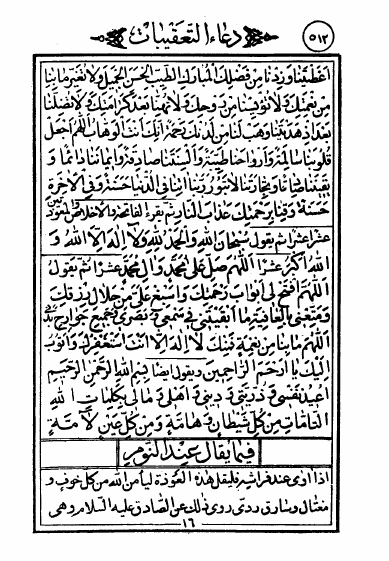 ٥١٣
دعاء التعقيبات
أعطيتنا وزدنا من فضلك المبارك الطيب الحسن الجميل ولا تغير ما بنا
من نعمتك ولا تؤيسنا من روحك ولا تهنا بعد كرامتك ولا تضلنا
بعد إذ هديتنا وهب لنا من لدنك رحمة إنك أنت الوهاب اللهم اجعل
قلوبنا سالمة وأرواحنا طيبة وألسنتنا صادقة وإيماننا دائما و
يقيننا صادقا وتجارتنا لا تبور ربنا آتنا في الدنيا حسنة وفي الآخرة
حسنة وقنا برحمتك عذاب النار ثم يقرء الفاتحة والإخلاص والمعوذتين
عشرا عشرا ثم يقول سبحان الله والحمد لله ولا إله إلا الله و
الله أكبر عشرا اللهم صل على محمد وآل محمد عشرا ثم يقول
اللهم افتح لي أبواب رحمتك وأسبغ علي من حلال رزقك
ومتعني بالعافية ما أبقيتني في سمعي وبصري وجميع جوارح بدني
اللهم ما بنا من نعمة فمنك لا إله إلا أنت أستغفرك وأتوب
إليك يا أرحم الراحمين ويقول أيضا بسم الله الرحمن الرحيم
أعيذ نفسي وذريتي وديني وأهلي ومالي بكلمات الله
التامات من كل شيطان وهامة ومن كل عين لامة
فيما يقال عند النوم
إذا أوى عند فراشه فليقل هذه العوذة ليأمن الله من كل خوف و
مغتال وسارق ردي روي ذلك عن الصادق عليه السلام وهي
١٦